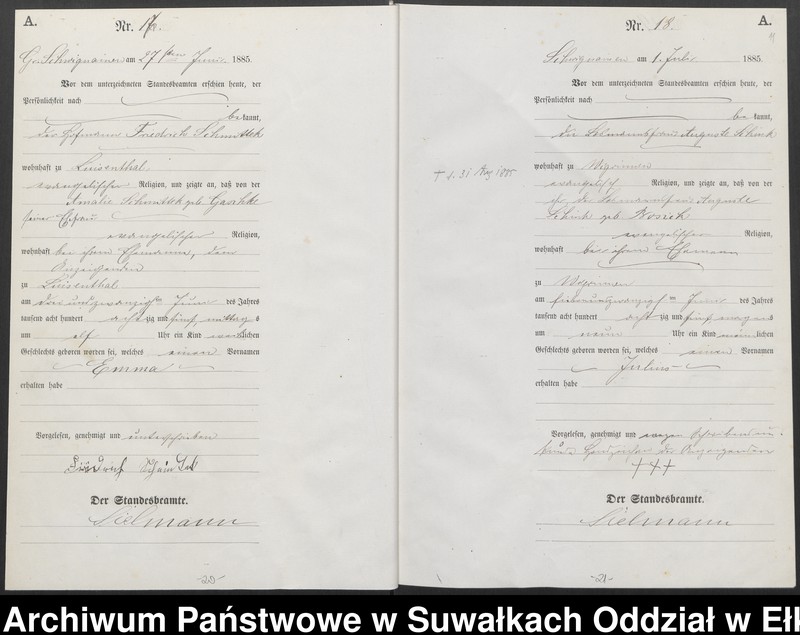 A.
Nr. 17.
Gr. Schwignainen am 27 ten Juni 1885.
Vor dem unterzeichneten Standesbeamten erschien heute, der
Persönlichkeit nach
be kannt,
Friedrich
wohnhaft zu Luisenthal
evangelischer Religion, und zeigte an, daß von der
Amalie geb
seiner Ehefrau
evangelischer Religion,
wohnhaft bei ihrem Ehemanne, dem
Anzeigenden
zu Luisenthal
am drei und zwanzigsten Juni des Jahres
tausend acht hundert acht zig und fünf, mittags
um elf Uhr ein Kind weiblichen
Geschlechts geboren worden sei, welches einen Vornamen
Emma
erhalten habe
Vorgelesen, genehmigt und unterschrieben
Der Standesbeamte.
Sielmann
-20-
A.
Nr. 18.
am 1. Juli 1885.
Vor dem unterzeichneten Standesbeamten erschien heute, der
Persönlichkeit nach
be kannt,
die Auguste Schink
† d. 31 Aug 1885
wohnhaft zu
evangelisch Religion, und zeigte an, daß von der
Auguste
Schink geb
evangelischer Religion,
wohnhaft bei ihrem Ehemann
zu
am Juni des Jahres
tausend acht hundert acht zig und fünf morgens
um neun Uhr ein Kind männlichen
Geschlechts geboren worden sei, welches einen Vornamen
Julius
erhalten habe
Vorgelesen, genehmigt und wegen
Handzeichen der Anzeigenden
+++
Der Standesbeamte.
Sielmann
-21-
Archiwum Państwowe w Suwałkach Oddział w Ełk